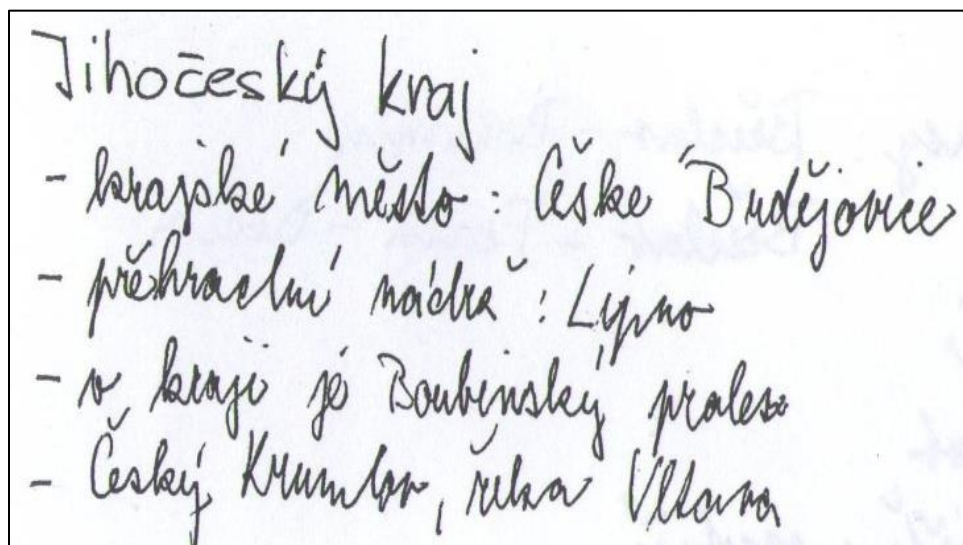 Jihočeský kraj
- krajské město: Češke Brdějovice
- přehradní nádrž: Lipno
- v kraji je Boubínský prales
- Český Krumlov, řeka Vltava